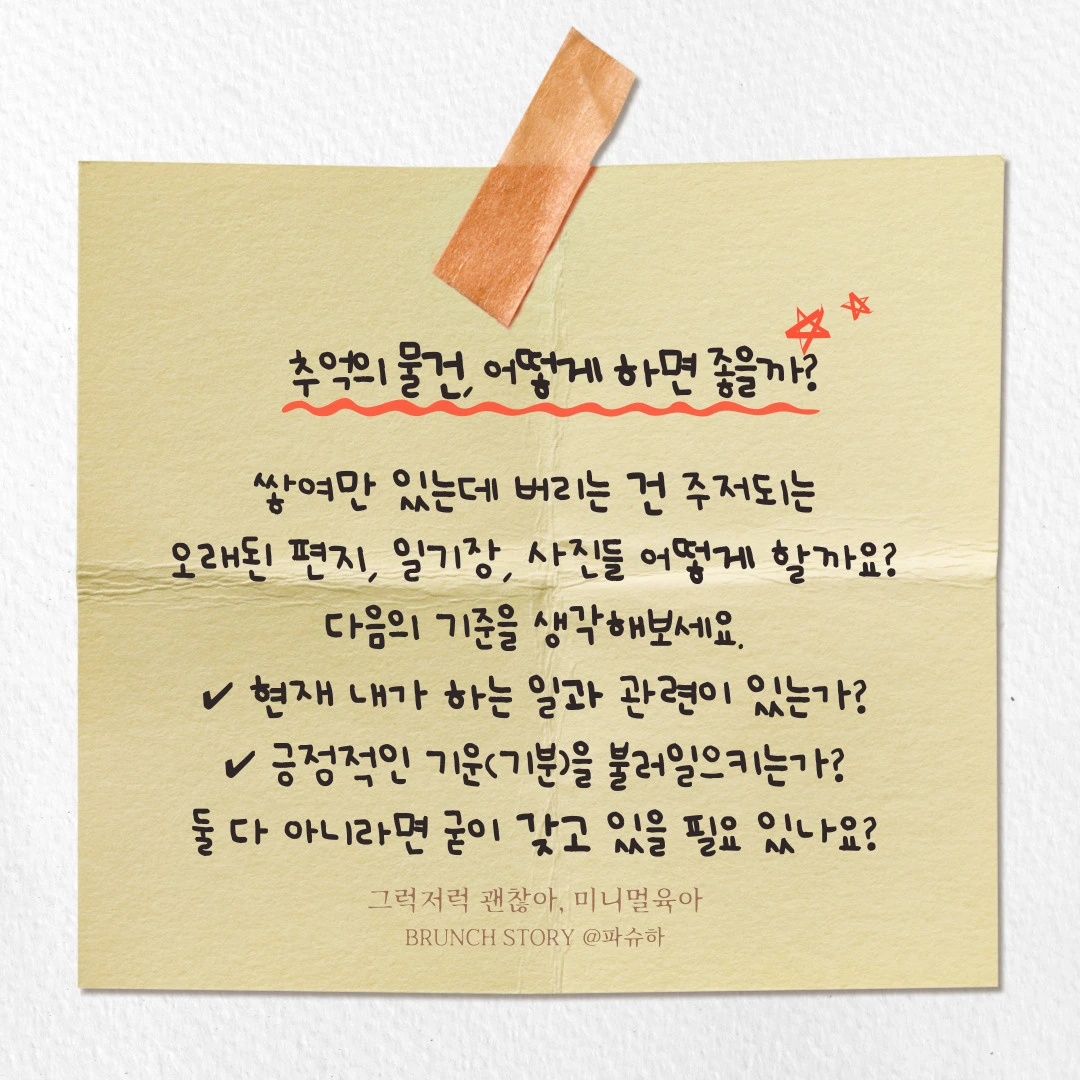 추억의 물건, 어떻게 하면 좋을까?
쌓여만 있는데 버리는 건 주저되는
오래된 편지, 일기장, 사진들 어떻게 할까요?
다음의 기준을 생각해보세요.
✔ 현재 내가 하는 일과 관련이 있는가?
✔ 긍정적인 기운(기분)을 불러일으키는가?
둘 다 아니라면 굳이 갖고 있을 필요 있나요?
그럭저럭 괜찮아, 미니멀육아
BRUNCH STORY @파슈하